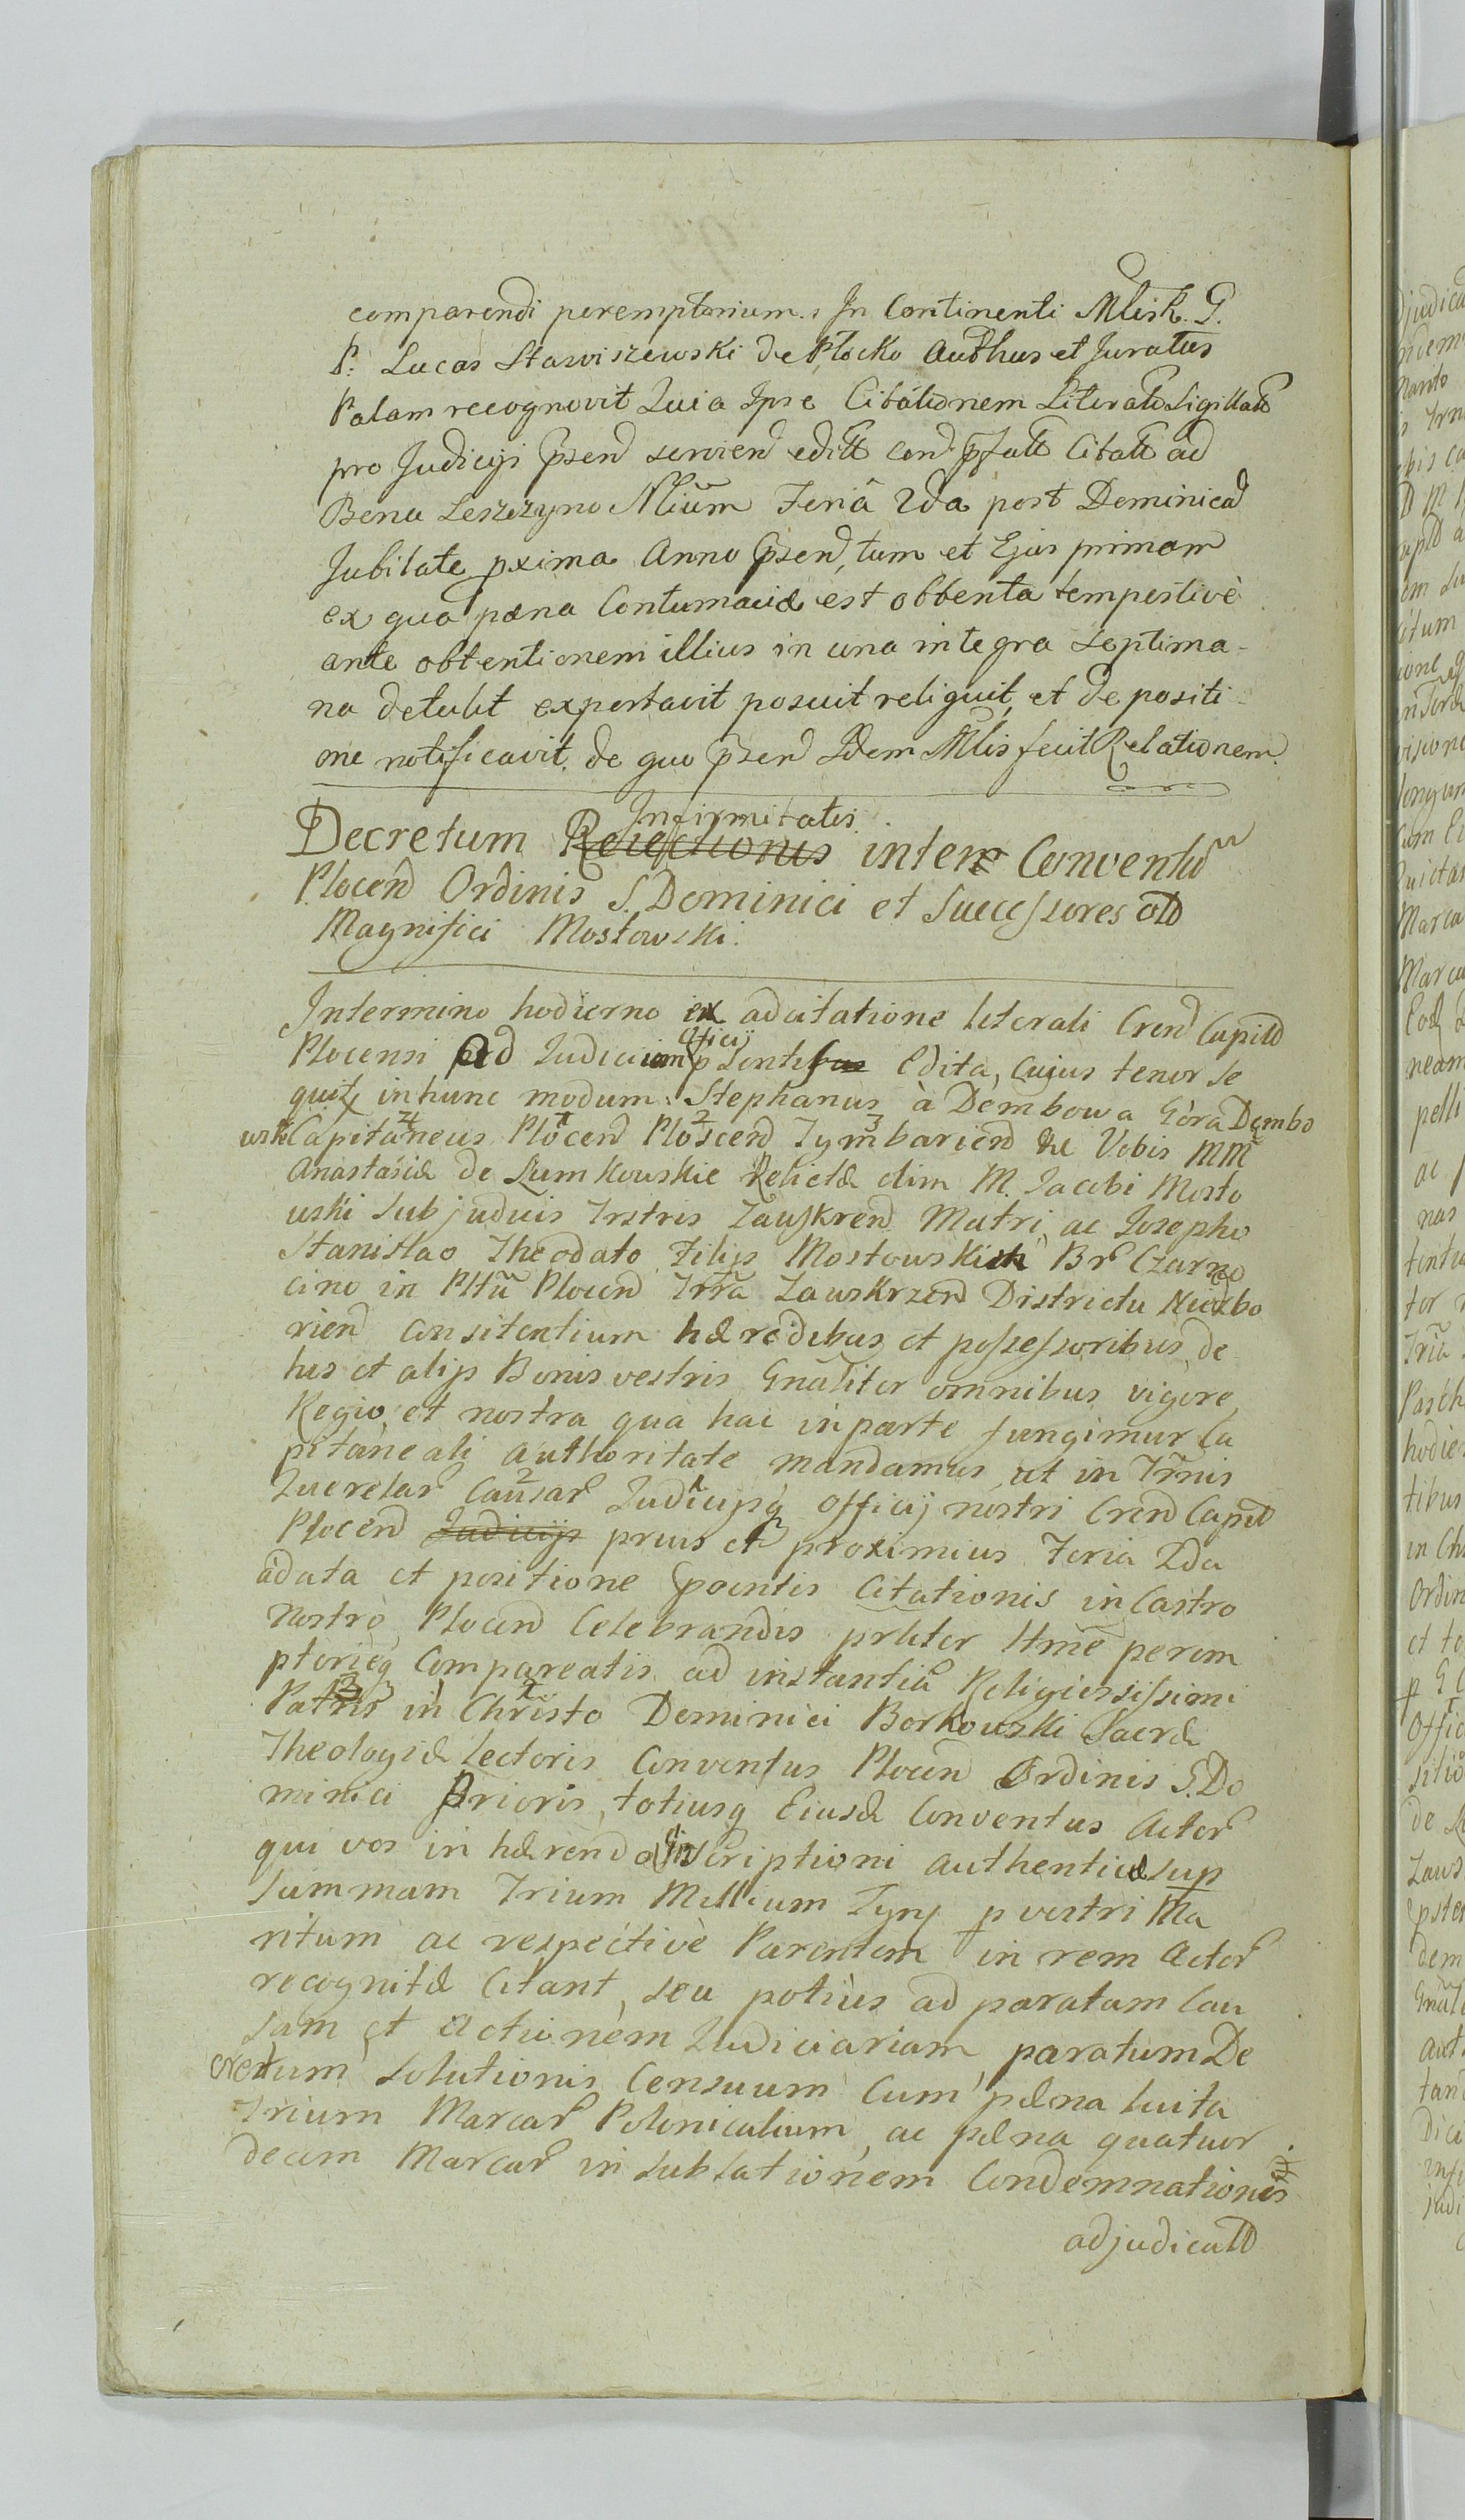 comparendi peremptorium. In Continenti Mlis R. G.
P. Lucas Stawiszewski de Płocko Authus et Juratus
Palam recognovit Quia Ipse Citationem Literato Sigillato
pro Judicijs psend serviend editt cond pfatt Citatt ad
Bona Leszczyno Nlium Feriâ 2da post Dominicad
Jubilate pxima Anno psend, tum et Ejus primam
ex qua pæna Contumaciæ est obtenta tempestivè
ante obtentionem illius in una integra Septima-
na detulit exportavit posuit reliquit, et de positi-
one notificavit. de quo psend Idem Mlis fecit Relationem.
Infirmitatis
Decretum Reiectionis inter Conventu
Plocend Ordinis S. Dominici et Successores oto
Magnifici Mostowski.
Intermino hodierno ex adcitatione literali Crend Capitl
Plocensi ad Judicium Officij pSenti Edita, Cujus tenor Se
quitr inhunc modum. Stephanus à Dembowa Góra Dembo
wski Capitaneus Plocend Ploscend Tymbariend &c Vobis MM
Anastasiæ de Szumkowskie Relictæ olim M. Jacobi Mosto
wski Subjudicis Trstris Zawskrend Matri, ac Josepho
Stanislao Theodato Filijs Mostowskich Br Czarno
cino in Pltu Plocend Trra Zawskrzend Districtu Niedzbo
riend Consitentium hæredibus et possessoribus, de
his et alijs Bonis vestris Gnaliter omnibus vigore
Regio, et nostra qua hac inparte fungimur Ca
pitaneali Authoritate mandamus, ut in Trmis
Querelar Causar Judicijsq Officij nostri Crend Capitl
Plocend Judicijs prius et proximius Feria 2da
adata et positione psentis Citationis in Castro
Nostro Plocend Celebrandis prliter Itme perem
ptorieq Compareatis ad instantia Religiosissimi
Patris in Christo Dominici Borkowski Sacræ
Theologiæ Lectoris Conventus Plocen Ordinis S. Do
minici Prioris, totiusq Eiusd Conventus Actor
qui vos in hærend Inscriptioni authenticæ sup
Summam Trium Millium Tynf p vestri Ma
ritum ac respectivè Parentem in rem Actor
recognitæ Citant, seu potiùs ad paratam Cau
sam et Actionem Judiciariam, paratum De
cretum Solutionis Censuum Cum pæna luita
Trium Marcar Polonicalium, ac pæna quatuor
decim Marcar in Sublationem Condemnationis
adjudicatt